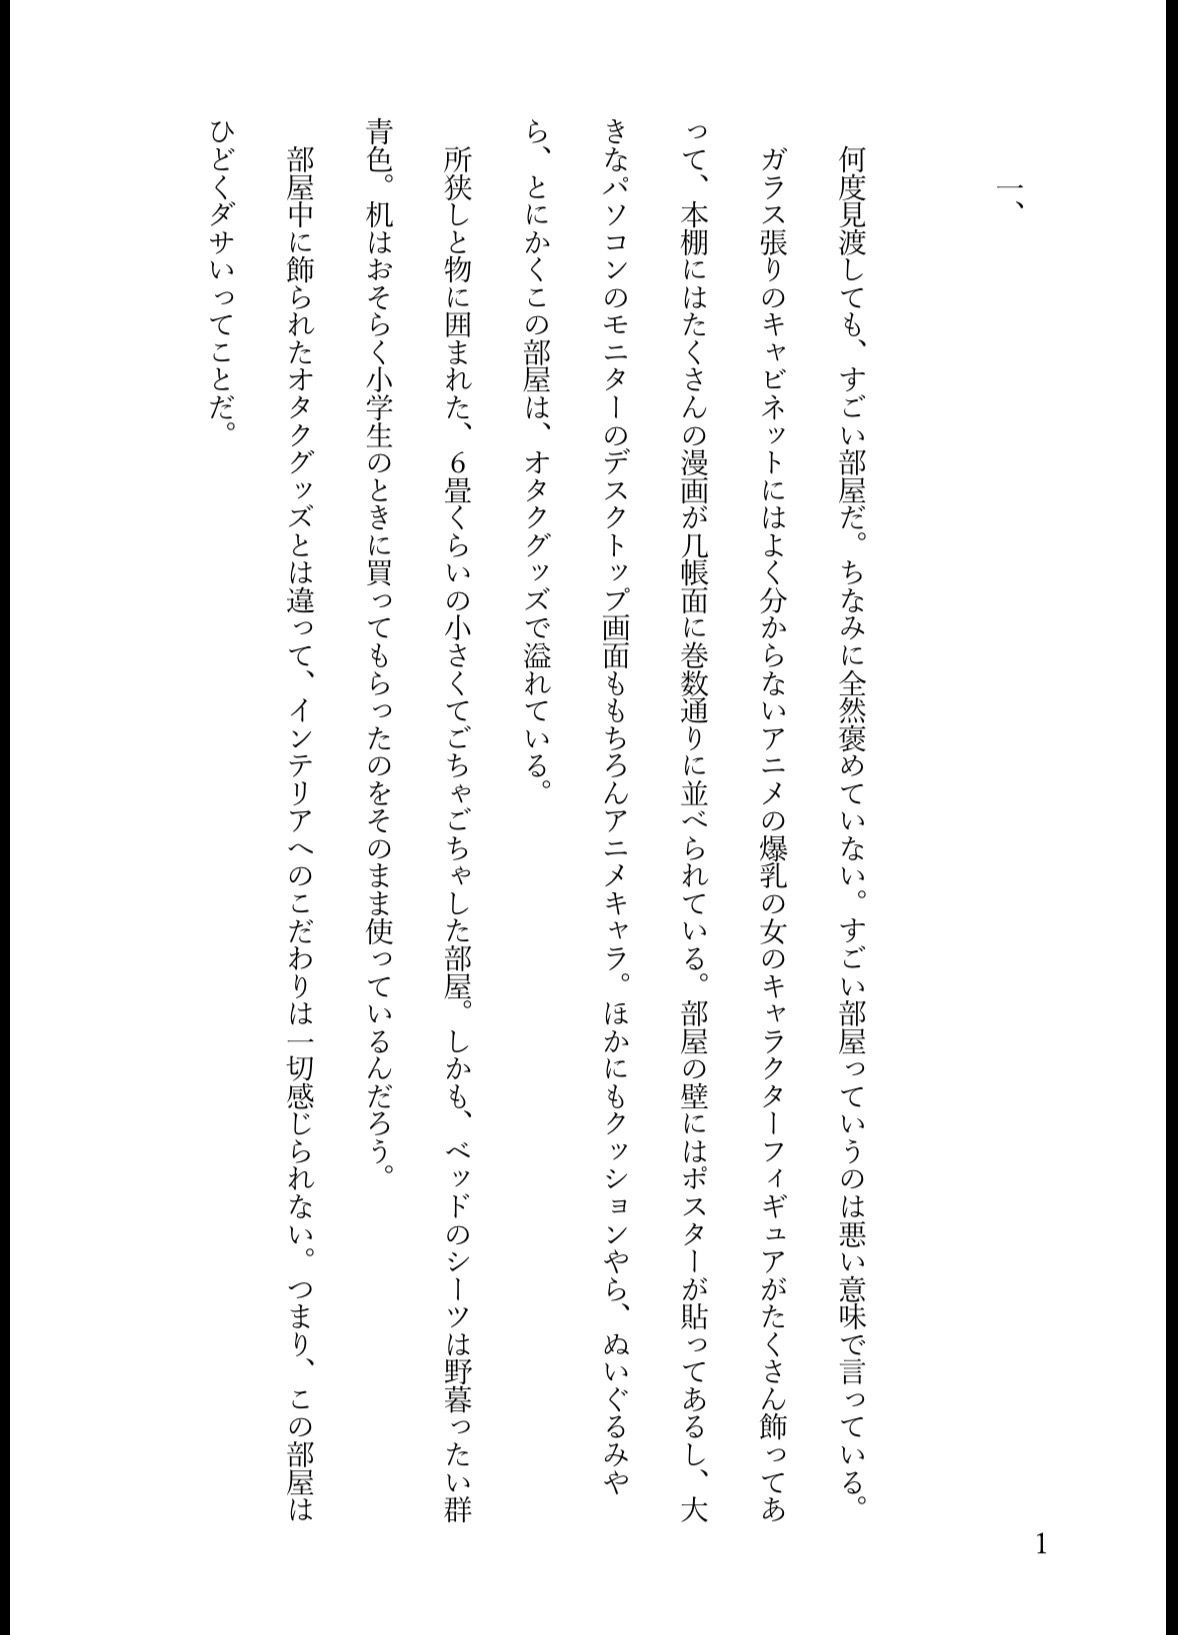 一、
何度見渡しても、すごい部屋だ。ちなみに全然褒めていない。すごい部屋っていうのは悪い意味で言っている。
ガラス張りのキャビネットにはよく分からないアニメの爆乳の女のキャラクターフィギュアがたくさん飾ってあ
って、本棚にはたくさんの漫画が几帳面に巻数通りに並べられている。部屋の壁にはポスターが貼ってあるし、大
きなパソコンのモニターのデスクトップ画面ももちろんアニメキャラ。ほかにもクッションやら、ぬいぐるみや
ら、とにかくこの部屋は、オタクグッズで溢れている。
所狭しと物に囲まれた、6畳くらいの小さくてごちゃごちゃした部屋。しかも、ベッドのシーツは野暮ったい群
青色。机はおそらく小学生のときに買ってもらったのをそのまま使っているんだろう。
部屋中に飾られたオタクグッズとは違って、インテリアへのこだわりは一切感じられない。つまり、この部屋は
ひどくダサいってことだ。
1